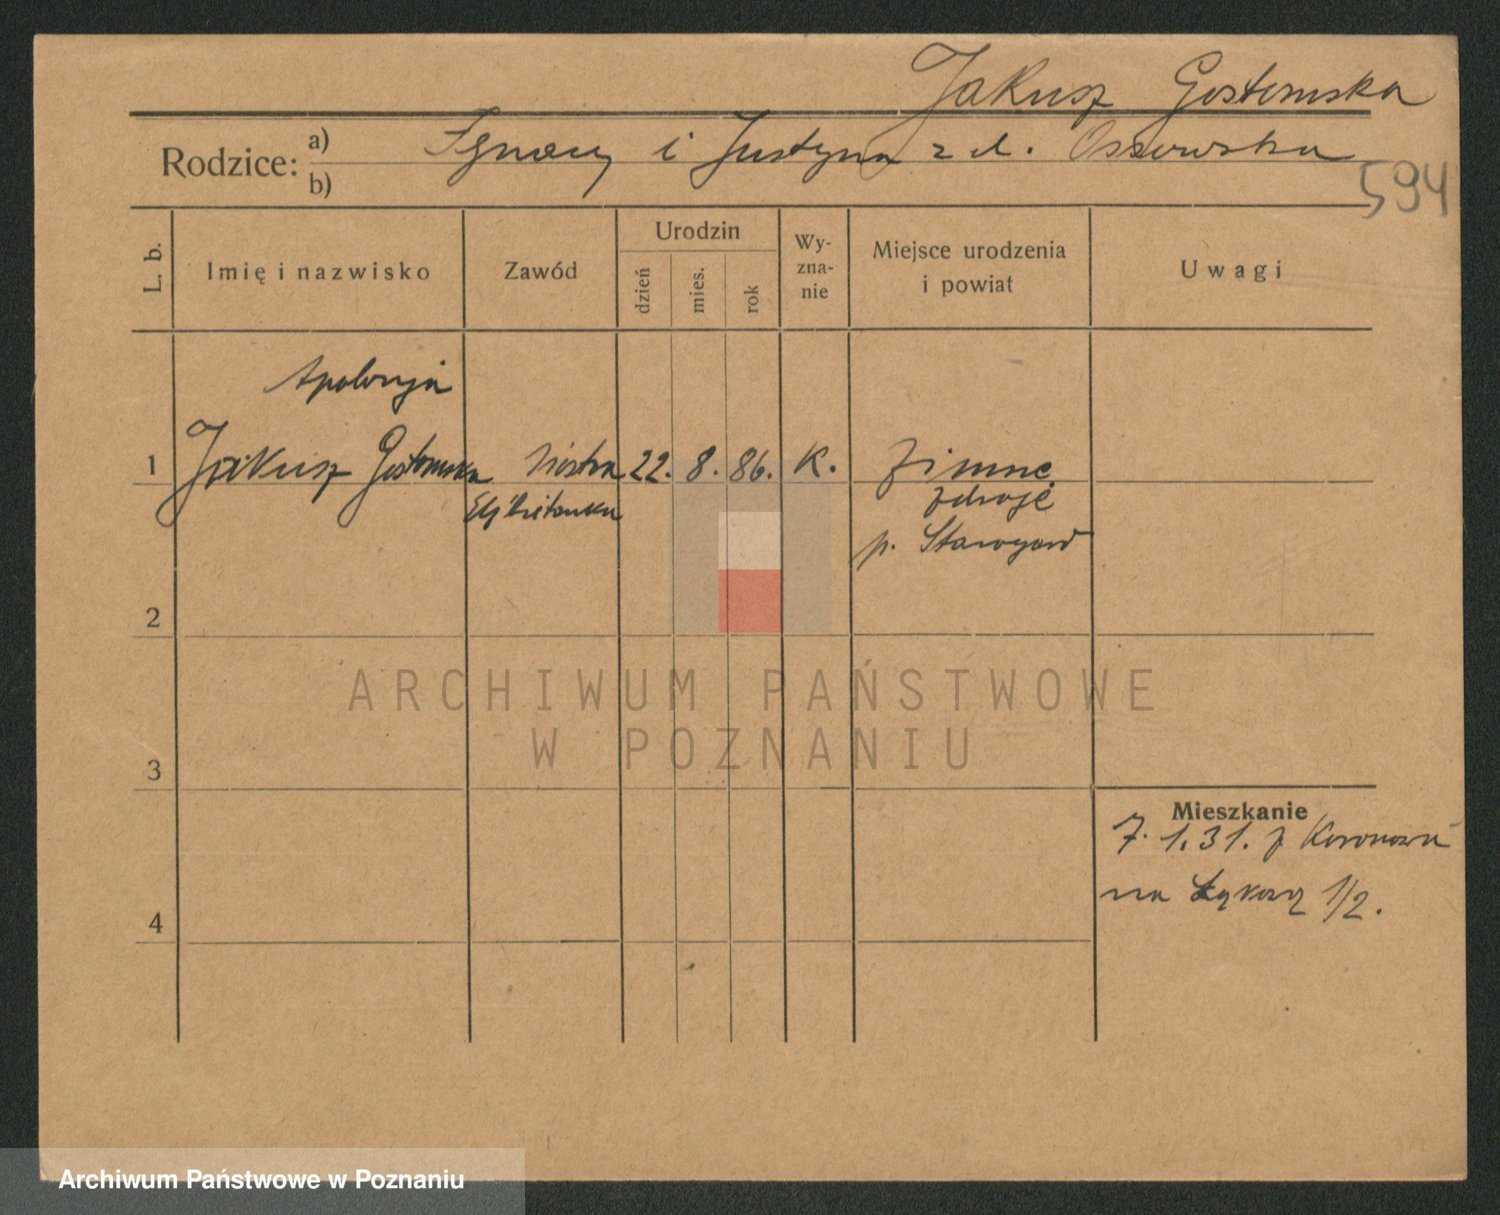 Jakusz Gostomska
Rodzice: a) Ignacy i Justyna z d. Ossowska
b)
594
L. b.
Imię i nazwisko
Zawód
Urodzin
dzień
mies.
rok
Wy-
zna-
nie
Miejsce urodzenia
i powiat
Uwagi
Apolonja
1 Jakusz Gostomska Siostra 22. 8. 86. K. Zimne
Elżbietanka
zdroje
p. Starogard
2
3
4
Mieszkanie
7. 1. 31. z Koronowa
na Łąkową 1/2.
ARCHIWUM PAŃSTWOWE
W POZNANIU
Archiwum Państwowe w Poznaniu